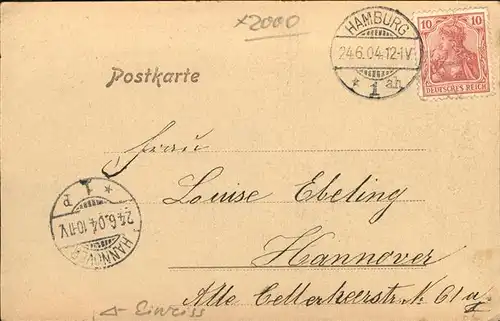 x2000
HAMBURG
24.6.04.12-1V
* 1 ah
10 10
DEUTSCHES REICH
Postkarte
Frau
Louise Ebeling
Hannover
Alte Cellerheerstr N. 61 a
HANNOVER
24.6.04.10-11V
* 1 P
Einriss